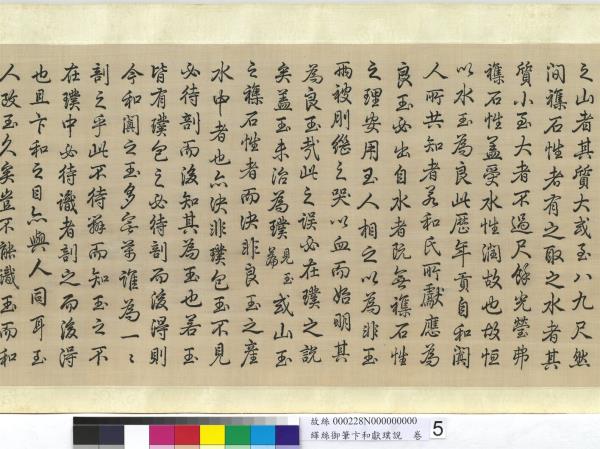 之山者其質大或至八九尺然
間襍石性者有之取之水者其
質小玉大者不過尺餘光瑩弗
襍石性蓋受水性潤故也故恒
以水玉為良此歷年貢自和闐
人所共知者若和氏所獻應為
良玉必出自水者既無襍石性
之理安用玉人相之以為非玉
兩被刖繼之哭以血而始明其
為良玉哉此之誤必在璞之說
矣蓋玉未治為璞見玉篇或山玉
之襍石性者而決非良玉之產
水中者也亦決非璞包玉不見
必待剖而後知其為玉也若玉
皆有璞包之必待剖而後得則
今和闐之玉多誰為一〻
剖之乎此不待辯而知玉之不
在璞中必待識者剖之而後得
也且卞和之目亦與人同耳玉
人攻玉久矣豈不能識玉而和
故絲 000228N000000000
緙絲御筆卞和獻璞說 卷 5